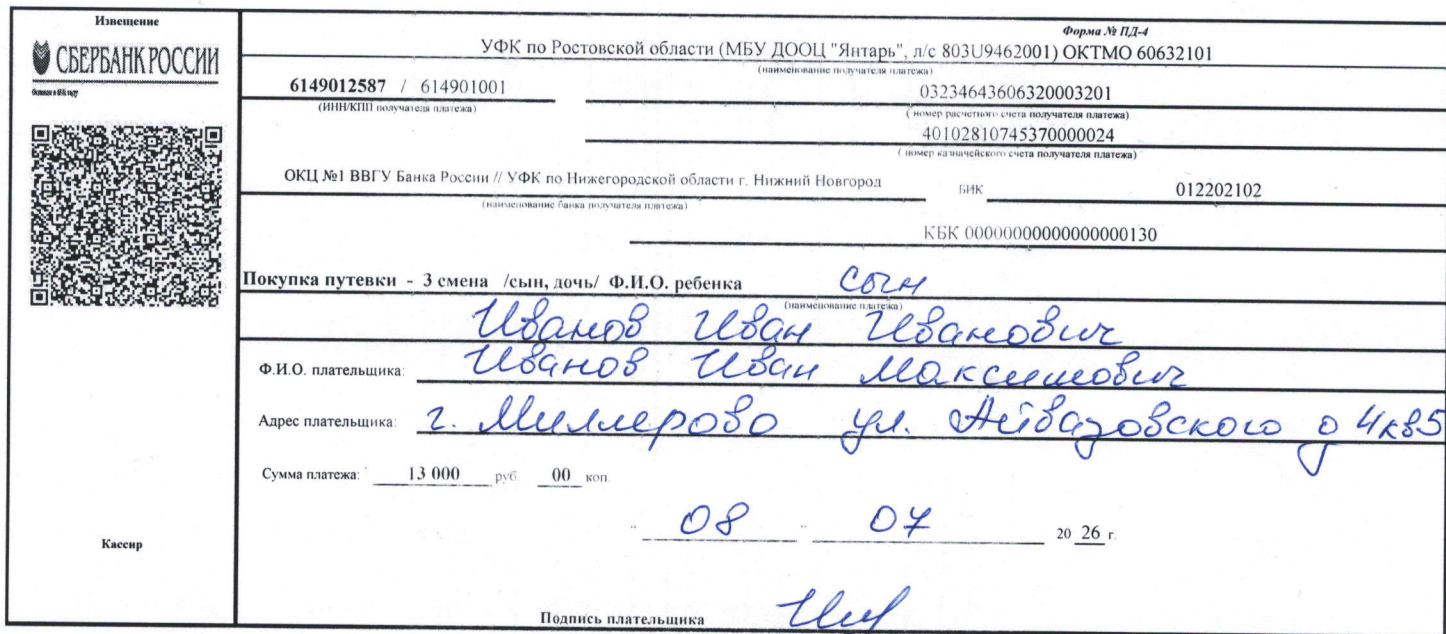 Извещение
СБЕРБАНК РОССИИ
Основан в 1841 году
Форма № ПД-4
УФК по Ростовской области (МБУ ДООЦ "Янтарь", л/с 803U9462001) ОКТМО 60632101
(наименование получателя платежа)
6149012587 / 614901001
03234643606320003201
(ИНН/КПП получателя платежа)
( номер расчетного счета получателя платежа)
40102810745370000024
( номер казначейского счета получателя платежа)
ОКЦ №1 ВВГУ Банка России // УФК по Нижегородской области г. Нижний Новгород
БИК 012202102
(наименование банка получателя платежа)
КБК 00000000000000000130
Покупка путевки - 3 смена /сын, дочь/ Ф.И.О. ребенка сын
(наименование платежа)
Иванов Иван Иванович
Ф.И.О. плательщика: Иванов Иван Максимович
Адрес плательщика: г. Миллерово ул. Айвазовского д 4 кв 5
Сумма платежа: 13 000 руб. 00 коп.
" 08 " 07 20 26 г.
Кассир
Подпись плательщика